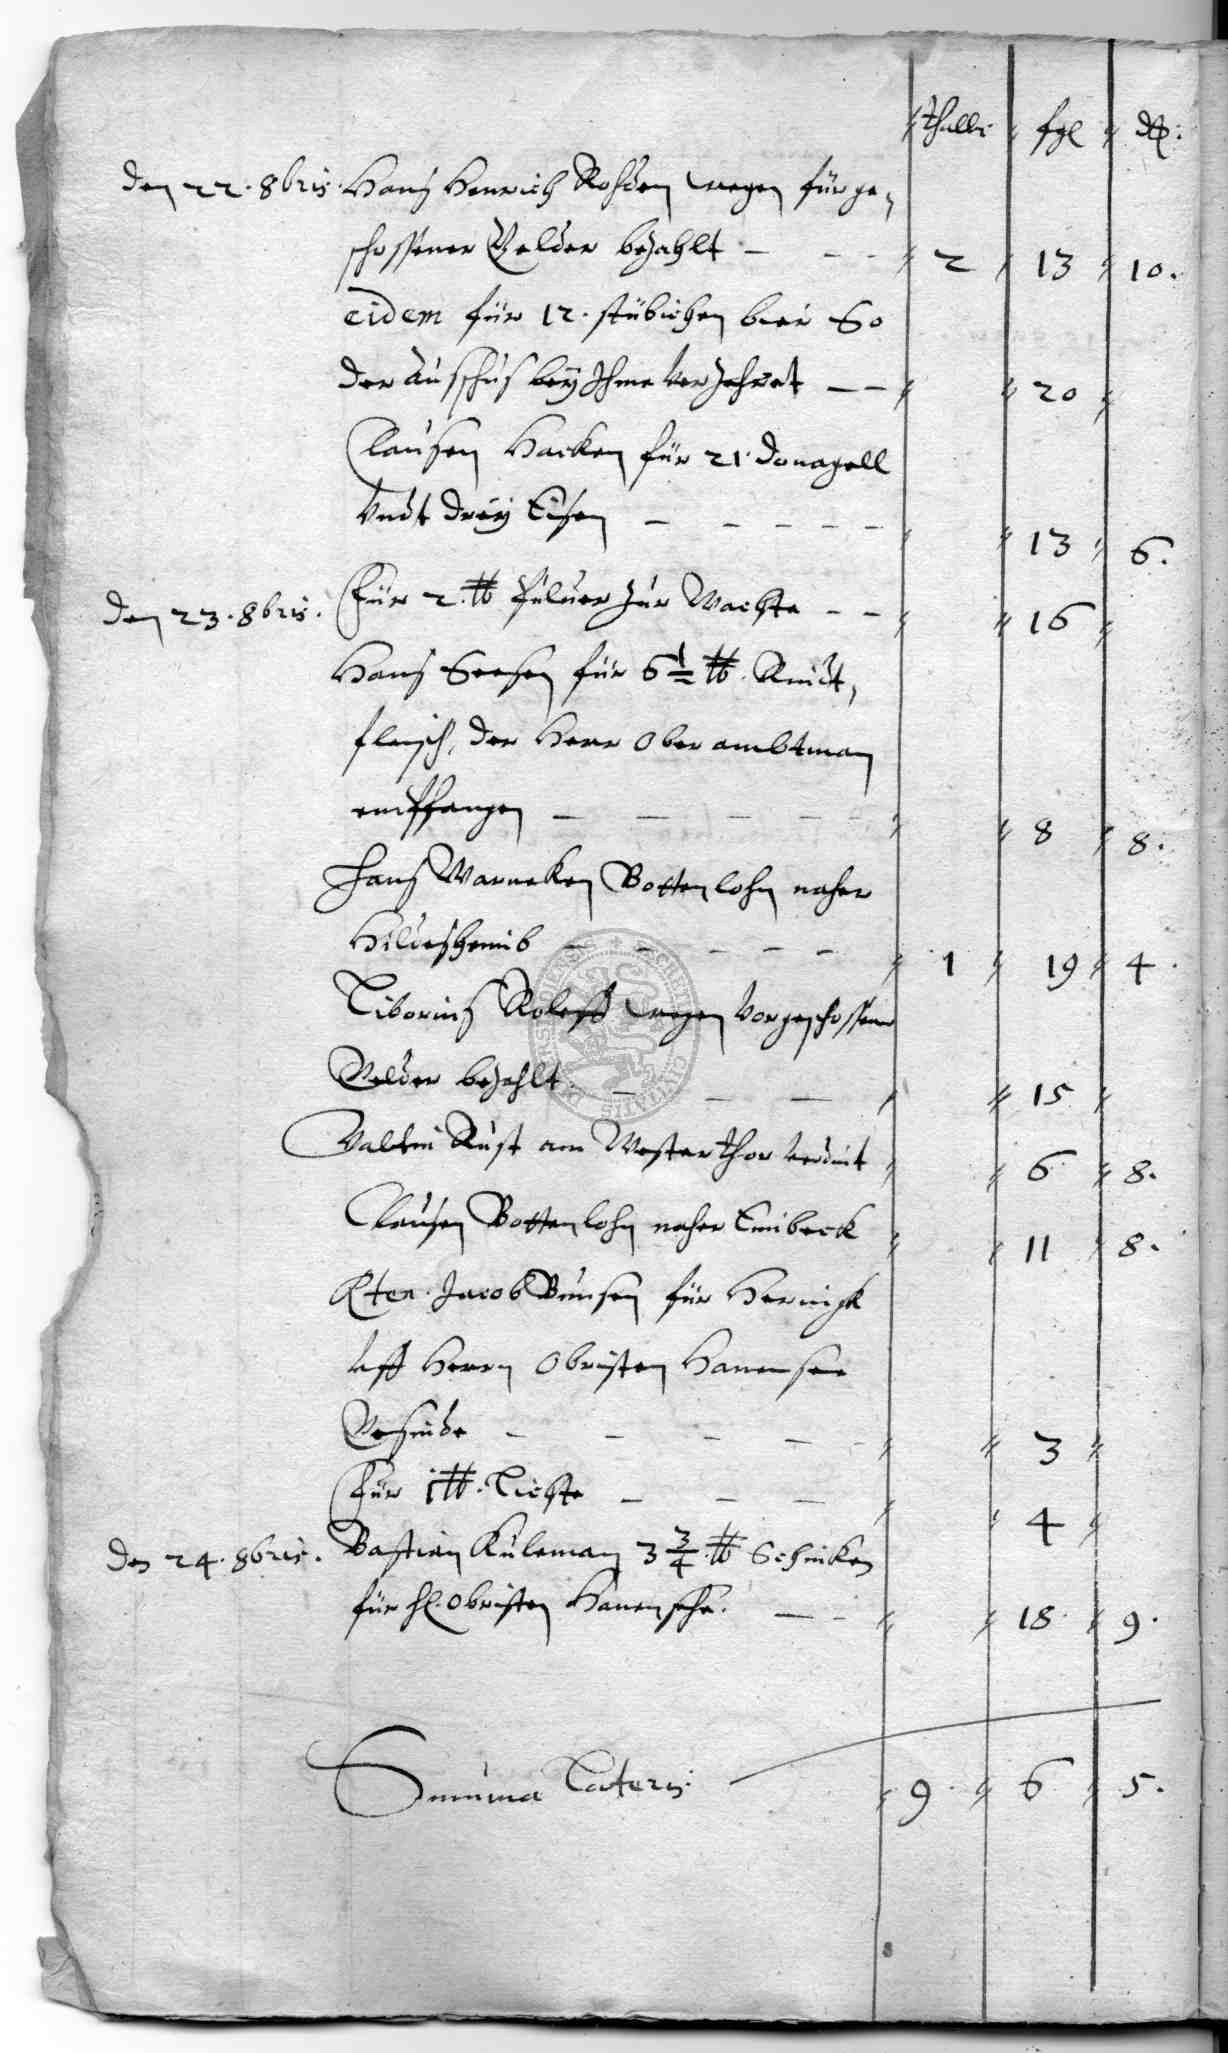 thaller fgl ₰.
den 22. 8bris. Hans Henrich Rohden wegen fürge,
schossener Gelder bezahlt — — — 2 13 10.
eidem für 12. stübichen bier So
der Ausschus bey Ihme verzehret — — 20
Clausen Hacken für 21
Vndt drey Eisen — — — — — 13 6.
den 23. 8bris. Für 2. ℔ Puluer zur Wachte — — 16
Hans Seesen für 6½ ℔. Rindt,
fleisch, der Herr Oberambtman
empffangen — — — — — 8 8.
Hans Warneken Bottenlohn naher
Hildesheimb — — — — — 1 19 4.
Liborius Roleff wegen vorgeschossener
Gelder bezahlt. — — — 15
Valtin Rust am Westerthor verdint 6 8.
Clausen Bottenlohn naher Einbeck 11 8.
Jacob Bünsen für Hering
uff Herrn Obristen Hanensee
Gesinde — — — — — 3
Für 1 ℔. Lichte — — — 4
den 24. 8bris. Bastian Kuleman 3¾ ℔ Schinken
für H. Obristen Hanensehe. — — 18. 9.
Summa Lateris 9. 6 5.